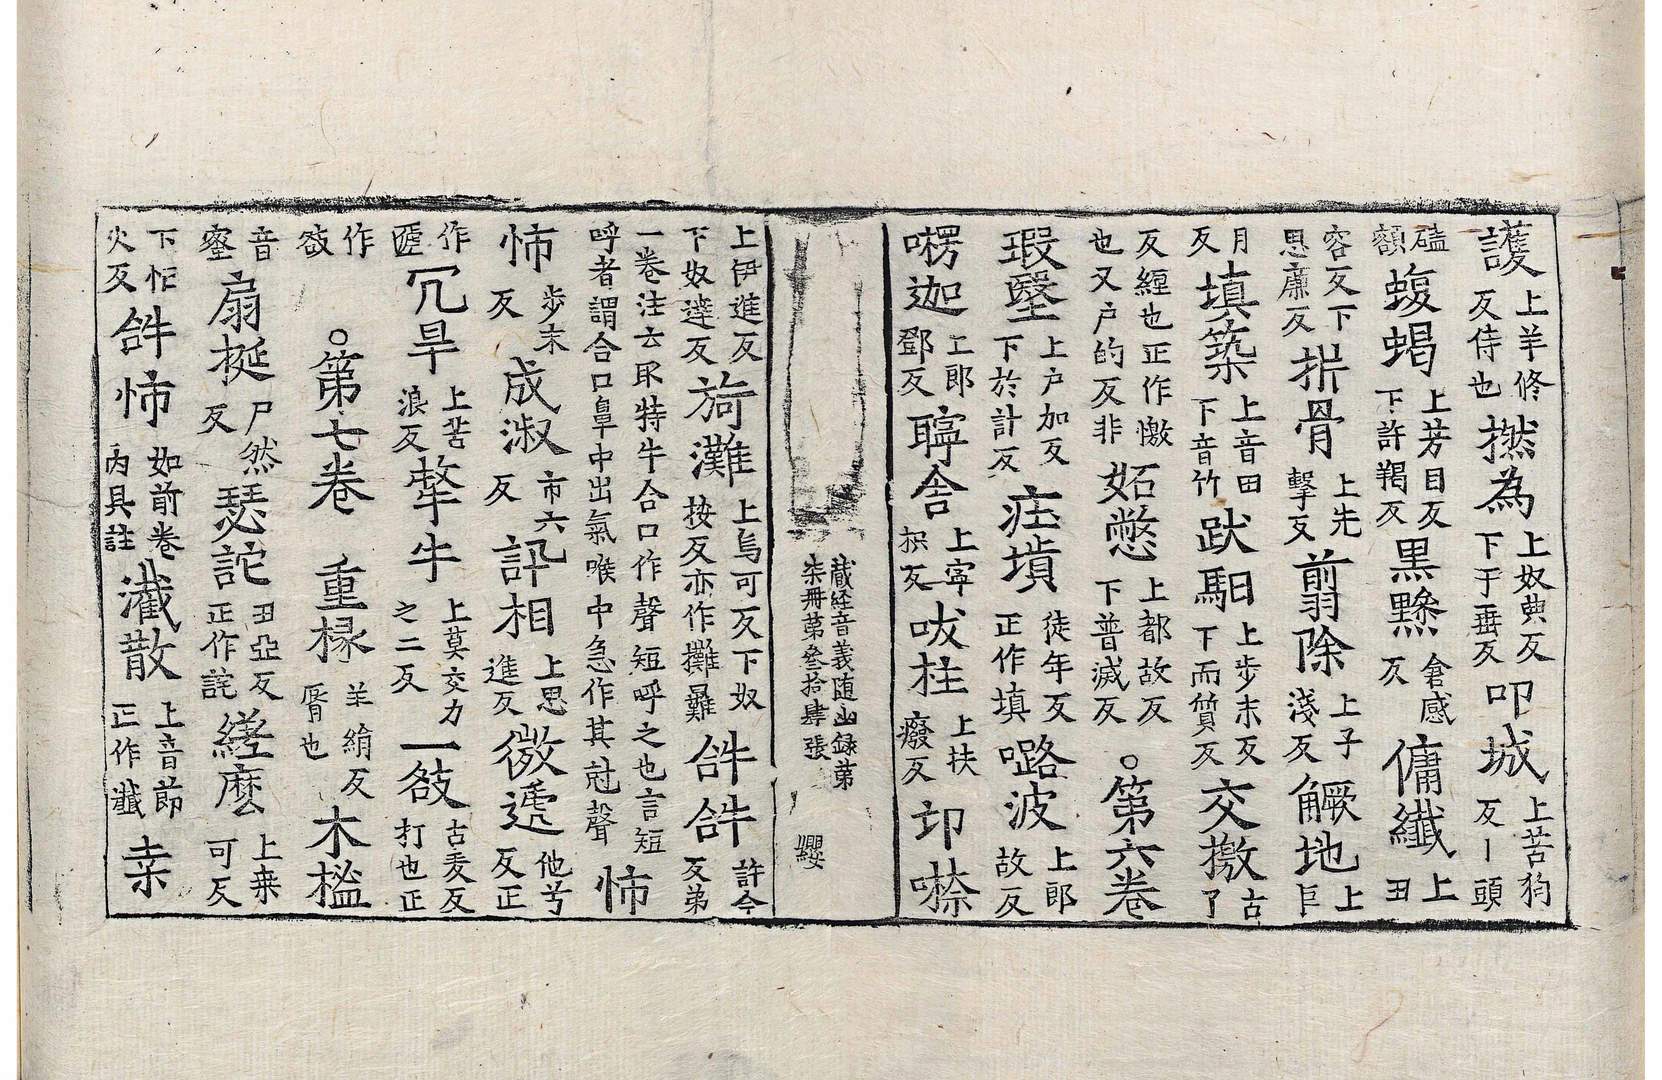 護上羊修反侍也撚為上奴典反下于垂反叩城上苦狗反丨頭
磕額蝮蝎上芳目反下許羯反黑黲倉感反傭纖上丑
容反下思廉反拼骨上先擊反翦除上子淺反觖地上巨
月反填築上音田下音竹跋馹上步末反下而質反交撽古了
反纏也正作憿也又户的反非妬憋上都故反下普滅反○第六卷
瑕瑿上户加反下於計反㽵塡徒年反正作填㗉波上郎故反
㘄迦上郎鄧反聹舍上寧挭反吠柱上扶廢反卬㗲
藏経音義随凾録第
柒册第叄拾肆張
纓
上伊進反下奴達反旑灘上烏可反下奴按反亦作攤難㗿㗿許今反弟
一卷注云取特牛合口作聲短呼之也言短
呼者謂合口鼻中出氣喉中急作其尅聲㤄
㤄步末反成淑市六反訙相上思進反微遞他兮反正
作匭冗旱上苦浪反犛牛上莫交力之二反一敆古麦反打也正
作敋○第七卷　重椽羊絹反脣也木榓
音蜜扇梴尸然反瑟詑丑亞反正作詫縒麽上桒可反
下忙火反㗿㤄如前卷丙具註㵶散上音節正作瀐桒